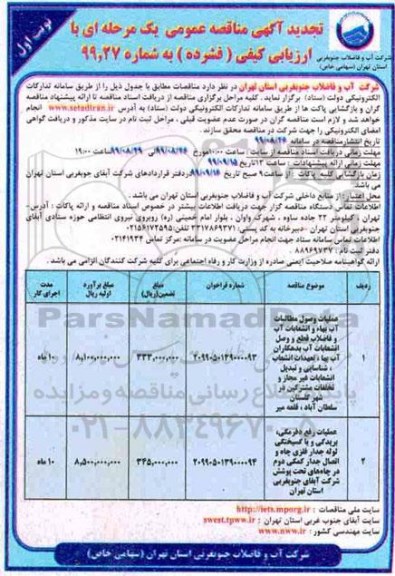 نوبت اول
تجدید آگهی مناقصه عمومی یک مرحله ای با
ارزیابی کیفی ( فشرده ) به شماره ۹۹,۲۷
شرکت آب و فاضلاب جنوبغربی
استان تهران (سهامی خاص)
شرکت آب و فاضلاب جنوبغربی استان تهران در نظر دارد مناقصات مطابق با جدول ذیل را از طریق سامانه تدارکات
الکترونیکی دولت (ستاد) برگزار نماید . کلیه مراحل برگزاری مناقصه از دریافت اسناد مناقصه تا ارائه پیشنهاد مناقصه
گران و بازگشایی پاکت ها از طریق سامانه تدارکات الکترونیکی دولت (ستاد) به آدرس www.setadiran.ir انجام
خواهد شد و لازم است مناقصه گران در صورت عدم عضویت قبلی ، مراحل ثبت نام در سایت مذکور و دریافت گواهی
امضای الکترونیکی را جهت شرکت در مناقصه محقق سازند .
تاریخ انتشار مناقصه در سامانه ۹۹/۰۸/۲۶
مهلت زمانی دریافت اسناد مناقصه از سایت : ساعت ۱۰:۰۰ مورخ ۹۹/۰۸/۲۶ الی ۹۹/۰۸/۲۹ ساعت ۱۹:۰۰
مهلت زمانی ارائه پیشنهادات : ساعت ۱۲ تاریخ ۹۹/۰۹/۱۵
زمان بازگشایی کلیه پاکات : از ساعت ۹ صبح تاریخ ۹۹/۰۹/۱۶ در دفتر قراردادهای شرکت آبفای جنوبغربی استان تهران می
باشد.
محل اعتبار : از منابع داخلی شرکت آب و فاضلاب جنوبغربی استان تهران می باشد .
اطلاعات تماس دستگاه مناقصه گزار جهت دریافت اطلاعات بیشتر در خصوص اسناد مناقصه و ارائه پاکات : آدرس-
تهران ، کیلومتر ۲۲ جاده ساوه ، شهرک واوان ، بلوار امام خمینی (ره) روبروی نیروی انتظامی حوزه ستادی آبفای
جنوبغربی استان تهران - دبیرخانه به کد پستی: ۳۳۱۷۸۶۹۳۷۱ تلفن:۰۲۱۵۶۱۷۲۵۹۵
اطلاعات تماس سامانه ستاد جهت انجام مراحل عضویت در سامانه :مرکز تماس ۰۲۱۴۱۹۳۴
دفتر ثبت نام : ۸۸۹۶۹۷۳۷
ارائه گواهینامه صلاحیت ایمنی صادره از وزارت کار و رفاه اجتماعی برای کلیه شرکت کنندگان الزامی می باشد .
ردیف موضوع مناقصه شماره فراخوان مبلغ تضمین(ریال) مبلغ برآورد اولیه ریال مدت اجرای کار
۱ عملیات وصول مطالبات
آب بهاء و انشعابات آب
و فاضلاب قطع و وصل
انشعابات آب بدهکاران
آب بها ، تعهدات انشعاب
، شناسایی و تبدیل
انشعابات غیر مجاز و
تخلفات مشترکین در
شهر گلستان
سلطان آباد ، قلعه میر
۲۰۹۹۰۵۰۱۳۹۰۰۰۰۹۳ ۳۳۳,۰۰۰,۰۰۰ ۸,۱۰۰,۰۰۰,۰۰۰ ۱۰ ماه
۲ عملیات رفع دفرمگی،
بریدگی و یا گسیختگی
لوله جدار فلزی چاه و
اتصال جدار کمکی دوم
در چاه‌های تحت پوشش
شرکت آبفای جنوبغربی
استان تهران
۲۰۹۹۰۵۰۱۳۹۰۰۰۰۹۴ ۳۴۵,۰۰۰,۰۰۰ ۸,۵۰۰,۰۰۰,۰۰۰ ۱۰ ماه
ParsNamadData
پایگاه اطلاع رسانی مناقصه و مزایده
۰۲۱-۸۸۳۴۹۶۷۰
سایت ملی مناقصات : http://iets.mporg.ir
سایت آبفای جنوب غربی استان تهران : swest.tpww.ir
سایت مهندسی کشور : www.nww.ir
شرکت آب و فاضلاب جنوبغربی استان تهران (سهامی خاص)